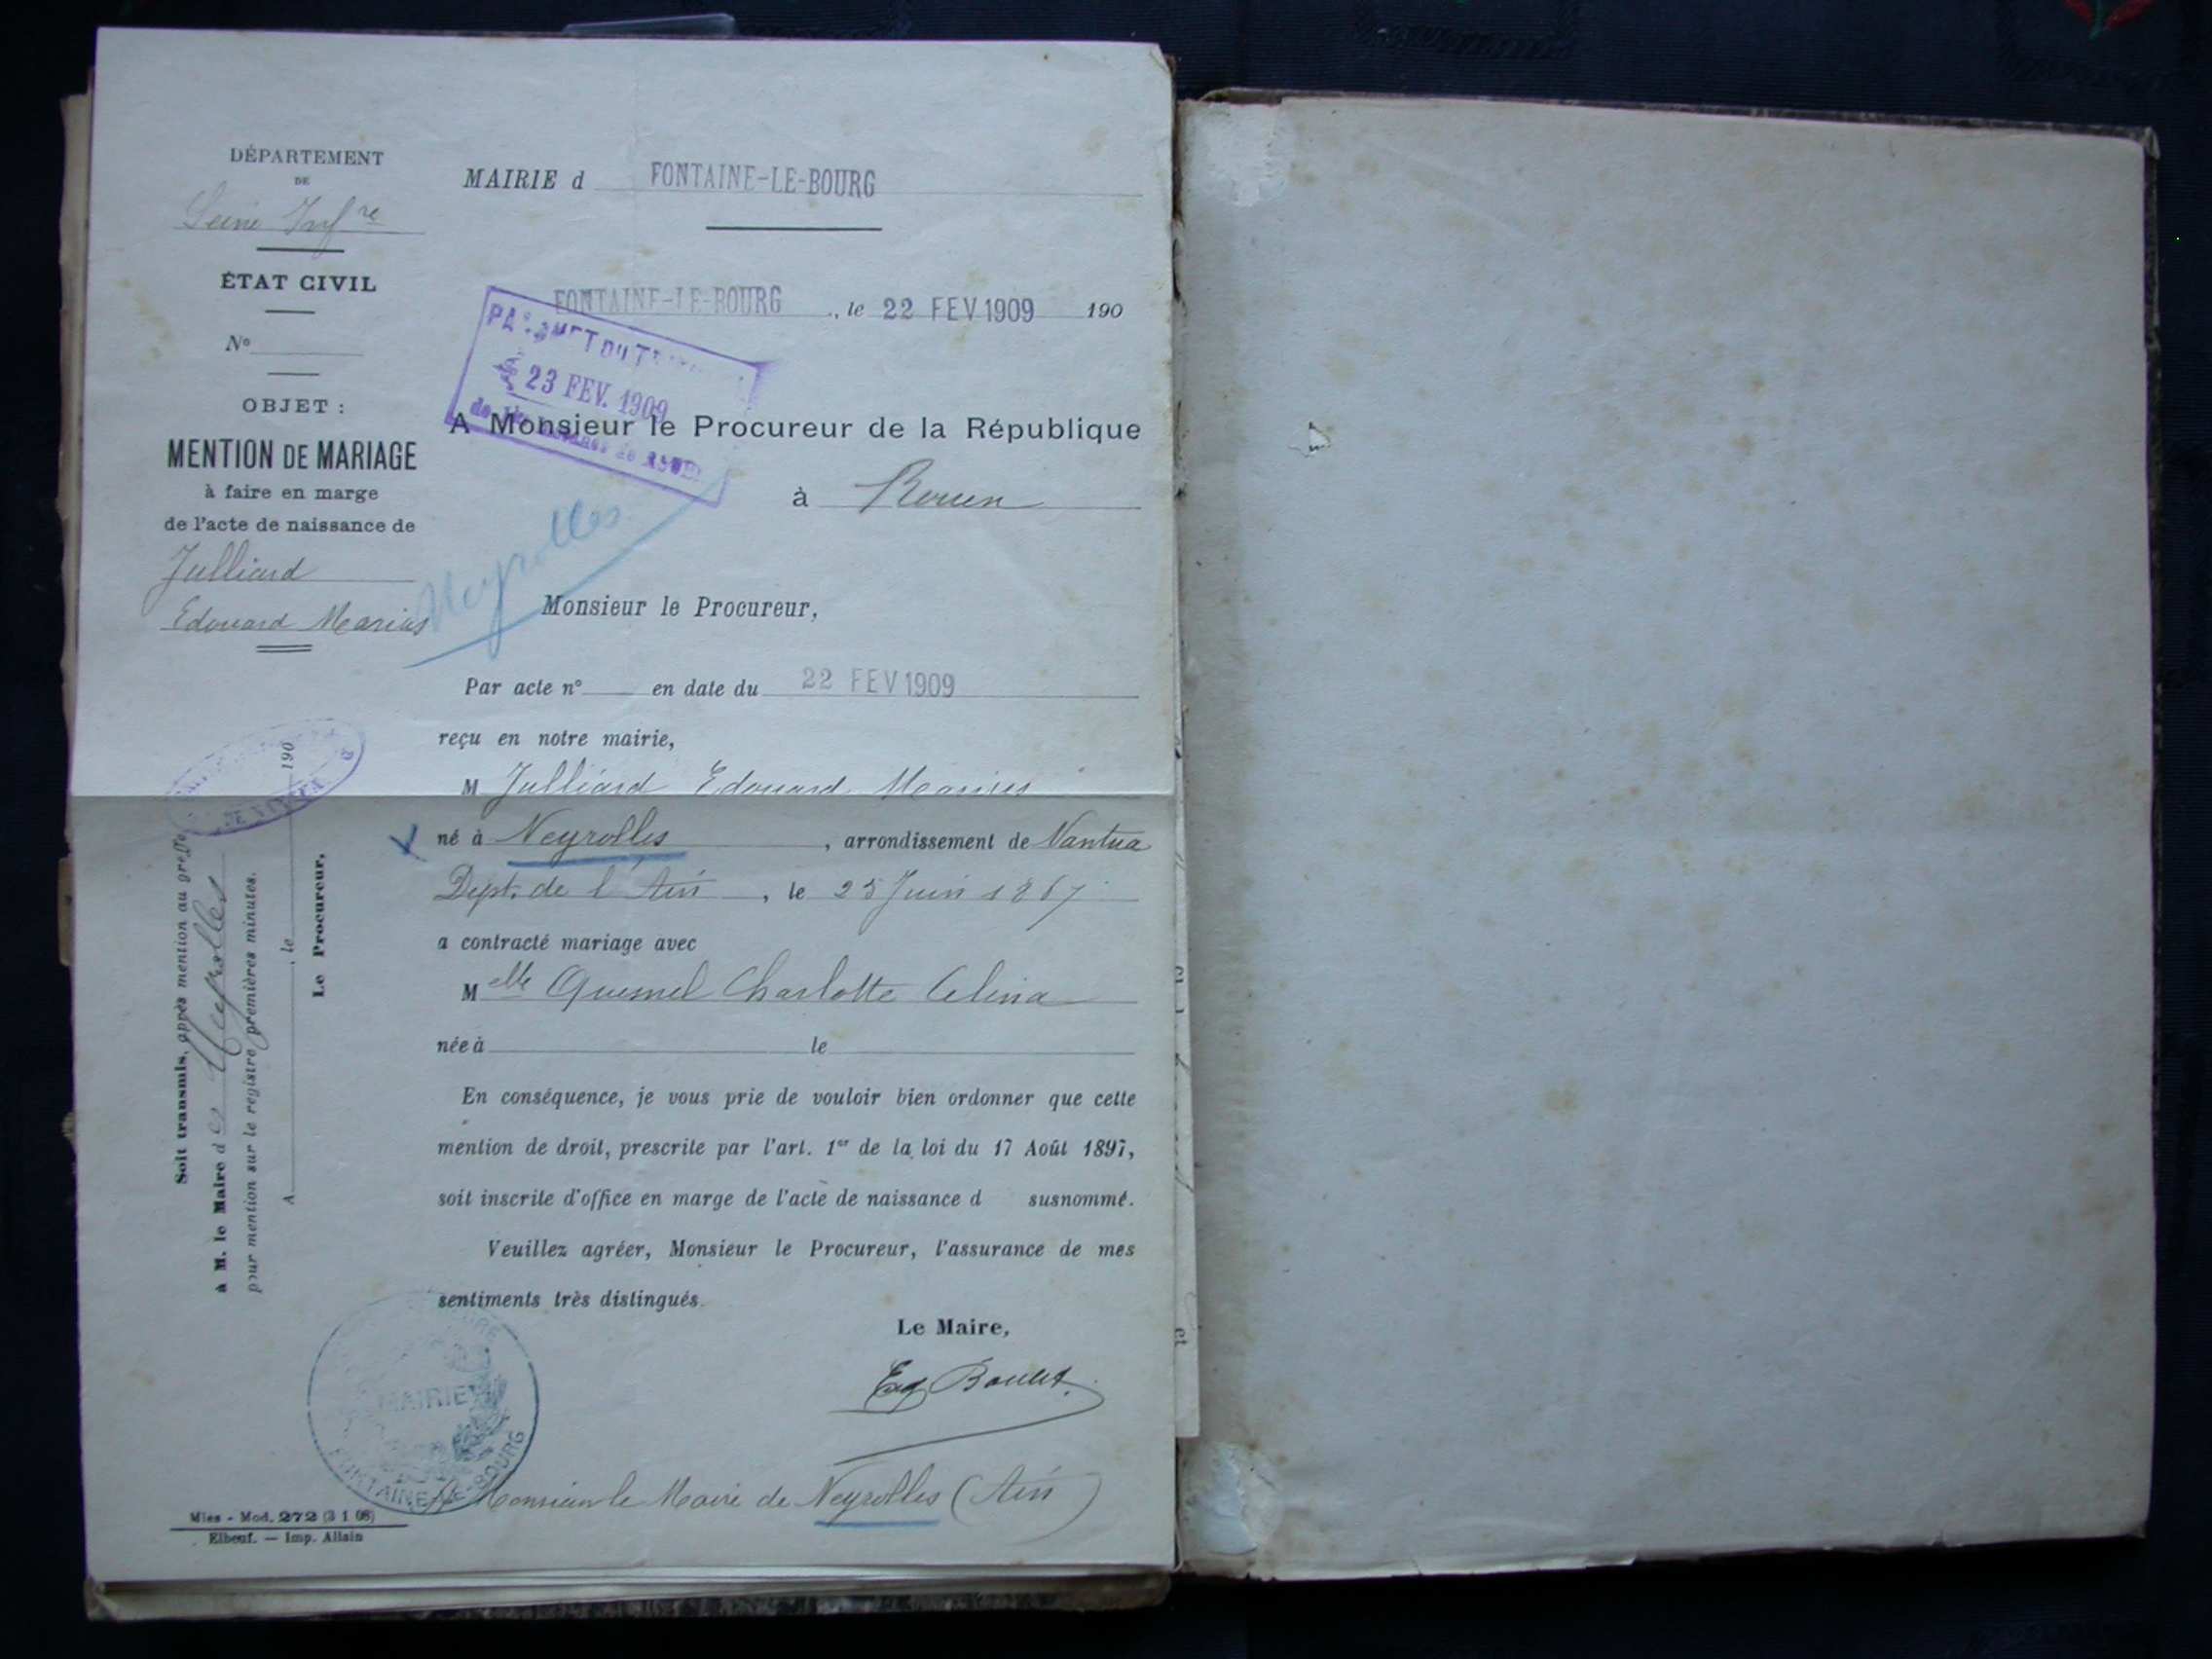 DÉPARTEMENT
DE
Seine Infre
ÉTAT CIVIL
No
OBJET :
MENTION DE MARIAGE
à faire en marge
de l'acte de naissance de
Julliard
Edouard Marius
MAIRIE d FONTAINE-LE-BOURG
FONTAINE-LE-BOURG, le 22 FEV 1909 190
23 FEV. 1909
A Monsieur le Procureur de la République
à Rouen
Neyrolles
Monsieur le Procureur,
Par acte no en date du 22 FEV 1909
reçu en notre mairie,
M Julliard Edouard Marius
né à Neyrolles, arrondissement de Nantua
Dept. de l'Ain, le 25 Juin 1867
a contracté mariage avec
Melle Quesnel Charlotte Celina
née à le
En conséquence, je vous prie de vouloir bien ordonner que cette
mention de droit, prescrite par l'art. 1er de la loi du 17 Août 1897,
soit inscrite d'office en marge de l'acte de naissance d susnommé.
Veuillez agréer, Monsieur le Procureur, l'assurance de mes
sentiments très distingués.
Le Maire,
MAIRIE
FONTAINE-LE-BOURG
A Monsieur le Maire de Neyrolles (Ain)
Soit transmis, après mention au greffe,
à M. le Maire des Neyrolles
pour mention sur le registre premières minutes.
A , le 190
Le Procureur,
Mies - Mod. 272 (3 1 08)
Elbeuf. — Imp. Allain
et